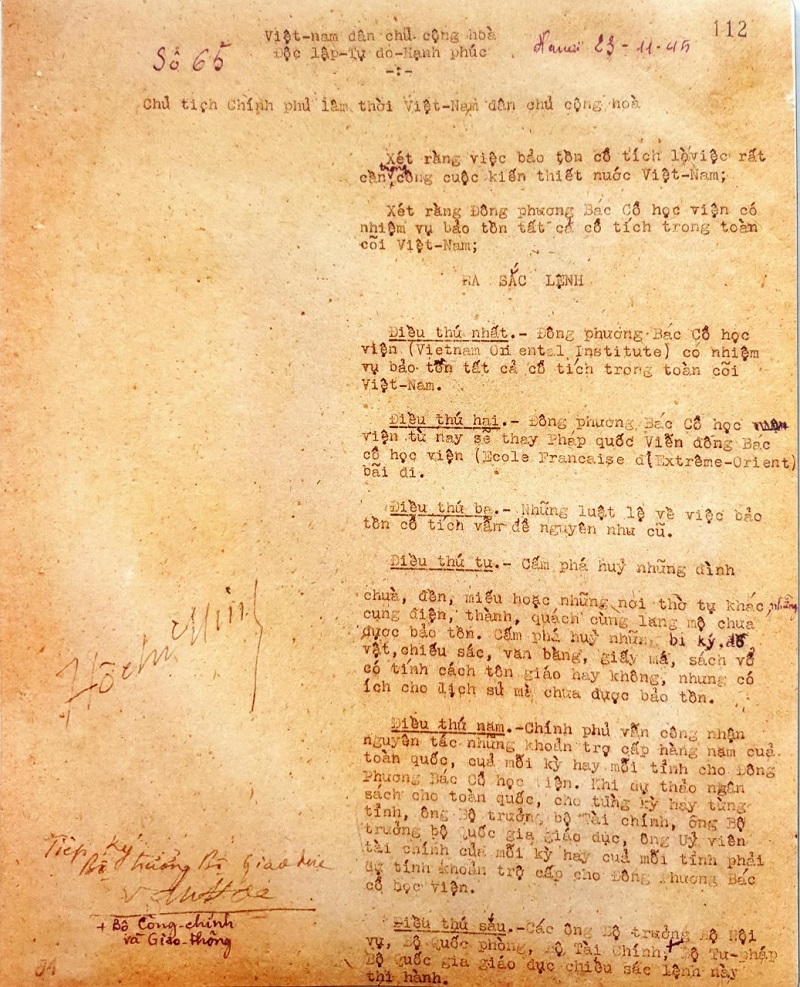 112
Việt-nam dân chủ cộng hoà
Độc lập-Tự do-Hạnh phúc
-:-
Số 65
Hanoi 23-11-45
Chủ tịch Chính phủ lâm thời Việt-Nam dân chủ cộng hoà
Xét rằng việc bảo tồn cổ tích là việc rất
cần trong công cuộc kiến thiết nước Việt-Nam;
Xét rằng Đông phương Bác Cổ học viện có
nhiệm vụ bảo tồn tất cả cổ tích trong toàn
cõi Việt-Nam;
RA SẮC LỆNH
Điều thứ nhất.- Đông phương Bác Cổ học
viện (Vietnam Oriental Institute) có nhiệm
vụ bảo tồn tất cả cổ tích trong toàn cõi
Việt-Nam.
Điều thứ hai.- Đông phương Bác Cổ học
viện từ nay sẽ thay Pháp quốc Viễn đông Bác
cổ học viện (Ecole Francaise d'Extrême-Orient)
bãi đi.
Điều thứ ba.- Những luật lệ về việc bảo
tồn cổ tích vẫn để nguyên như cũ.
Điều thứ tư.- Cấm phá huỷ những đình
chuà, đền, miếu hoặc những nơi thờ tự khác, những
cung điện, thành, quách cùng lăng mộ chưa
được bảo tồn. Cấm phá huỷ những bi ký, đồ
vật, chiếu sắc, văn bằng, giấy má, sách vở
có tính cách tôn giáo hay không, nhưng có
ích cho lịch sử mà chưa được bảo tồn.
Điều thứ năm.-Chính phủ vẫn công nhận
nguyên tắc những khoản trợ cấp hàng năm cuả
toàn quốc, cuả mỗi kỳ hay mỗi tỉnh cho Đông
Phương Bác Cổ học viện. Khi dự thảo ngân
sách cho toàn quốc, cho từng kỳ hay từng
tỉnh, ông Bộ trưởng bộ Tài chính, ông Bộ
trưởng bộ Quốc gia giáo dục, ông Uỷ viên
tài chính của mỗi kỳ hay cuả mỗi tỉnh phải
dự tính khoản trợ cấp cho Đông Phương Bác
cổ học viện.
Điều thứ sáu.-Các ông Bộ trưởng Bộ Nội
vụ, Bộ Quốc phòng, Bộ Tài Chính, + Bộ Tư-pháp
Bộ Quốc gia giáo dục chiếu sắc lệnh này
thi hành.
Hồ Chí Minh
Tiếp ký
Bộ trưởng Bộ Giáo dục
+ Bộ Công-chính
và Giao-thông